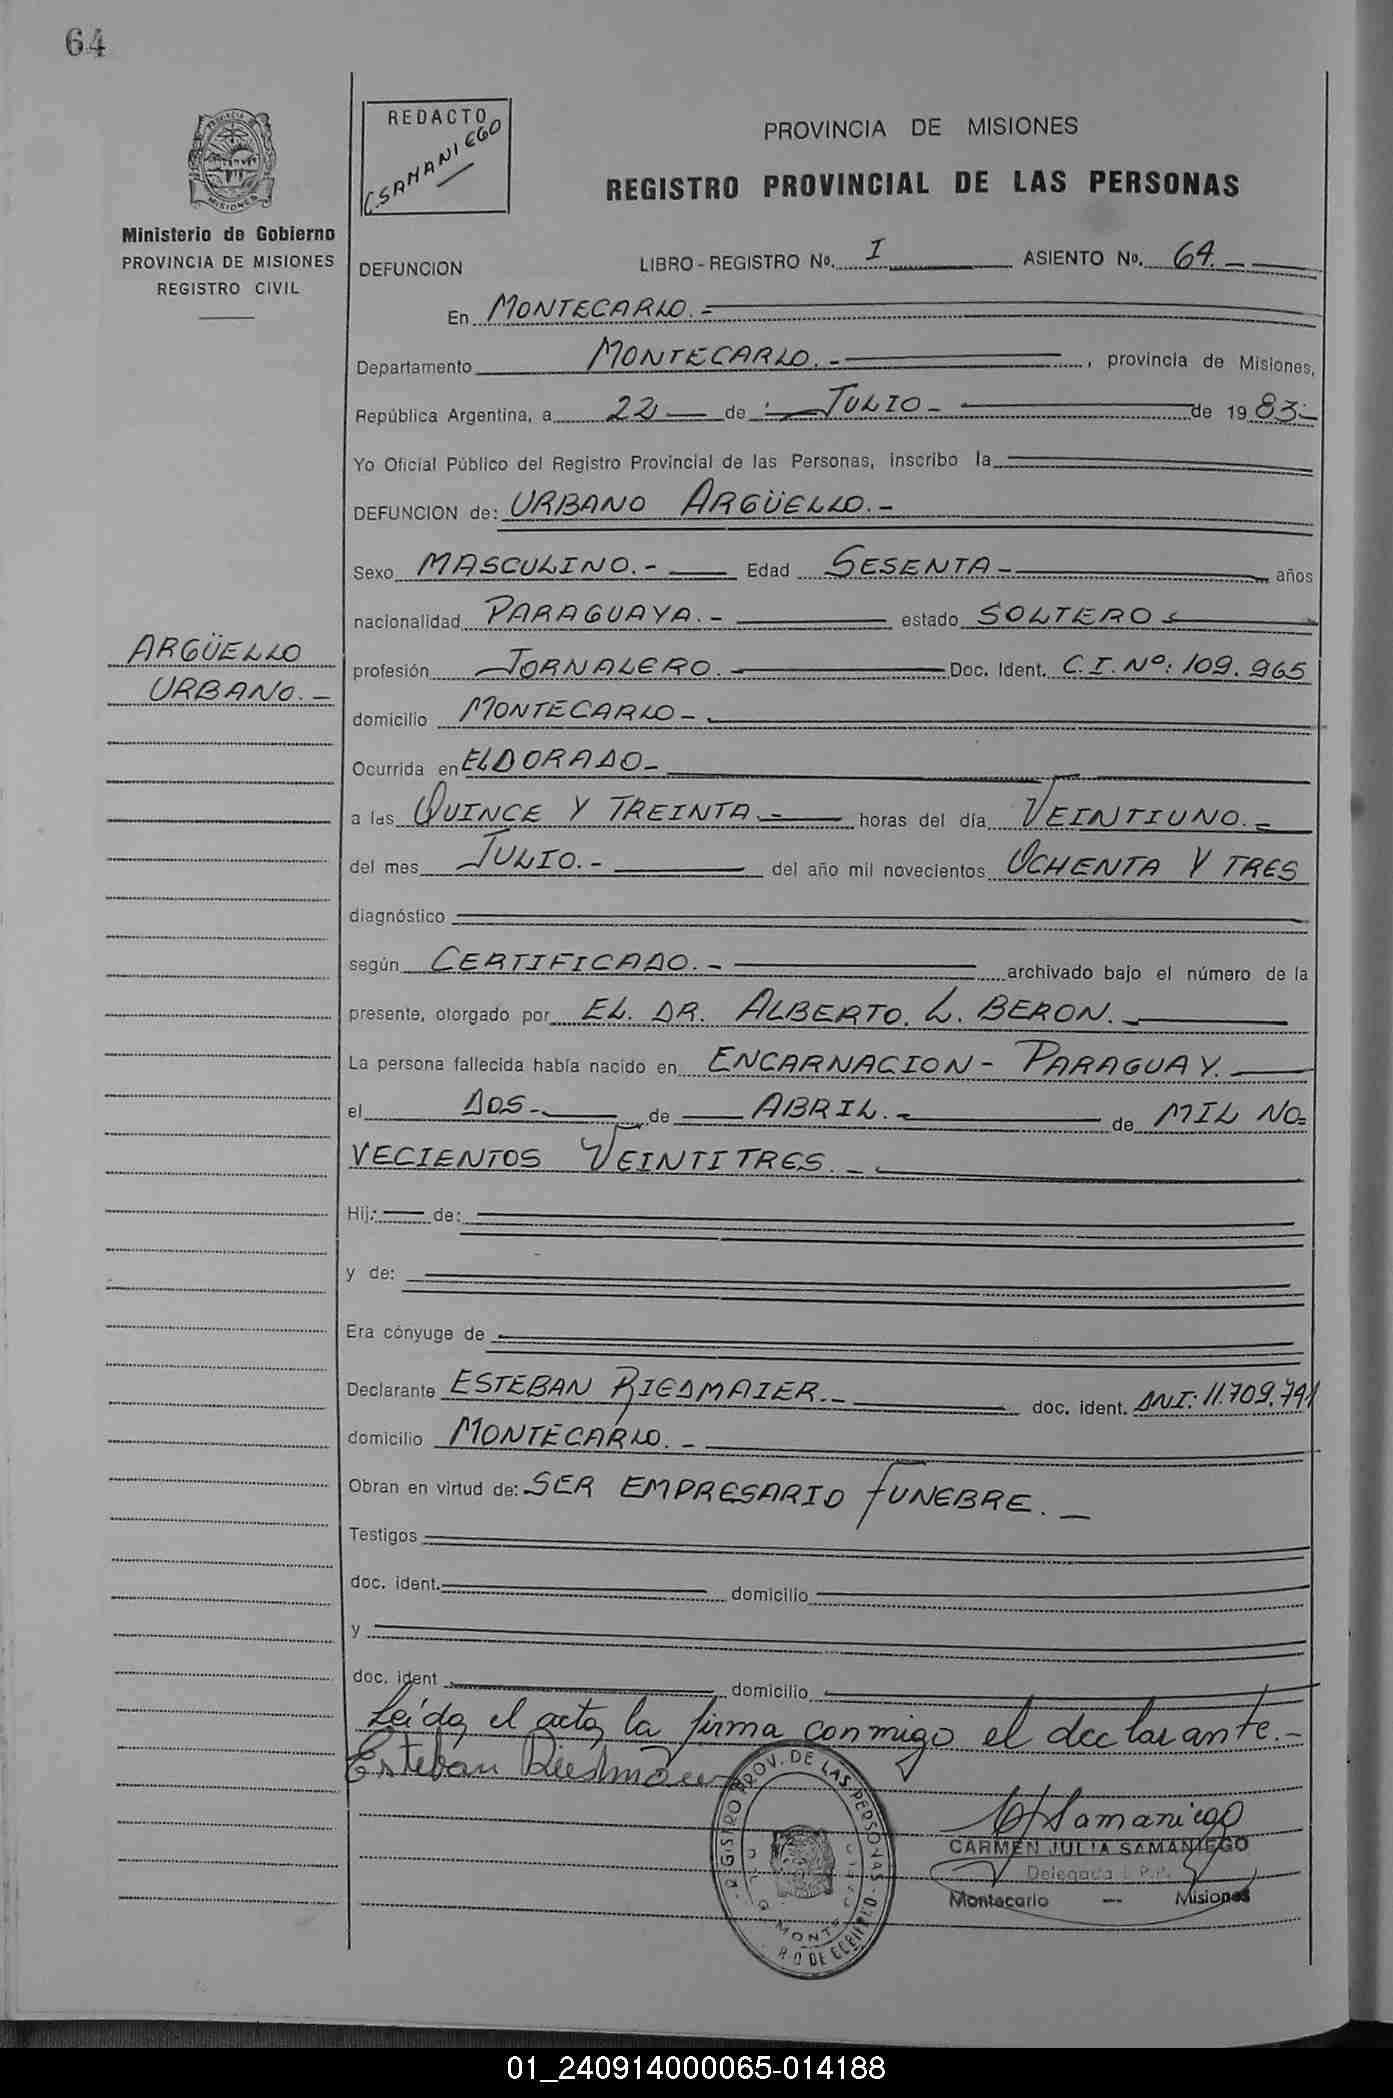 64
REDACTO
C.SAMANIEGO
PROVINCIA DE MISIONES
REGISTRO PROVINCIAL DE LAS PERSONAS
Ministerio de Gobierno
PROVINCIA DE MISIONES
REGISTRO CIVIL
DEFUNCION LIBRO - REGISTRO No. I ASIENTO No. 64.
En MONTECARLO.-
Departamento MONTECARLO.- , provincia de Misiones,
República Argentina, a 22 de JULIO- de 1983.-
Yo Oficial Público del Registro Provincial de las Personas, inscribo la
DEFUNCION de: URBANO ARGÜELLO.-
Sexo MASCULINO.- Edad SESENTA- años
nacionalidad PARAGUAYA.- estado SOLTERO
ARGÜELLO
URBANO.-
profesión JORNALERO.- Doc. Ident. C.I.Nº: 109.965
domicilio MONTECARLO-.
Ocurrida en ELDORADO-
a las QUINCE Y TREINTA.- horas del día VEINTIUNO.-
del mes JULIO.- del año mil novecientos OCHENTA Y TRES
diagnóstico
según CERTIFICADO.- archivado bajo el número de la
presente, otorgado por EL. DR. ALBERTO. L. BERON.
La persona fallecida había nacido en ENCARNACION- PARAGUAY.
el DOS- de ABRIL.- de MIL NO=
VECIENTOS VEINTITRES.-
Hij: de:
y de:
Era cónyuge de
Declarante ESTEBAN RIEDMAIER.- doc. ident. DNI: 11.709.791
domicilio MONTECARLO.-
Obran en virtud de: SER EMPRESARIO FUNEBRE.-
Testigos
doc. ident. domicilio
y
doc. ident domicilio
Leída el acta, la firma conmigo el declarante.-
Esteban Riedmaier
REGISTRO PROV. DE LAS PERSONAS
MONTE
Samaniego
CARMEN JULIA SAMANIEGO
Delegada R.P.P.
Montecarlo — Misiones
01_240914000065-014188